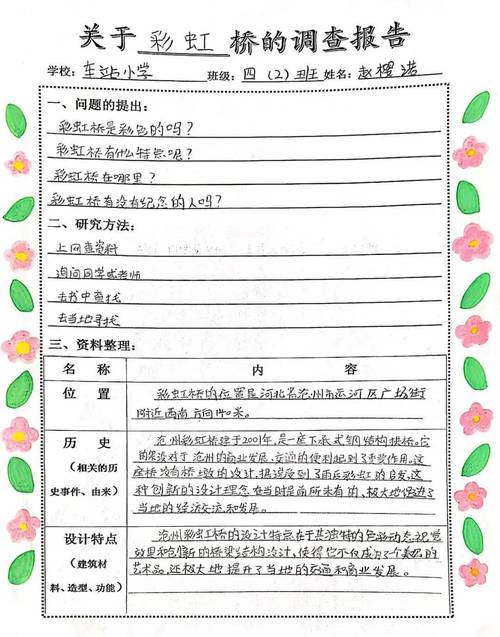 关于彩虹桥的调查报告
学校:车站小学 班级:四(2)班 姓名:赵樱诺
一、问题的提出:
彩虹桥是彩色的吗?
彩虹桥有什么特点呢?
彩虹桥在哪里?
彩虹桥有没有纪念的人吗?
二、研究方法:
上网查资料
询问同学或老师
去书中查找
去当地寻找
三、资料整理:
名称 内容
位置
彩虹桥的位置是河北省沧州市运河区广场街
附近西南方向140米。
历史
(相关的历
史事件、由来)
沧州彩虹桥建于2001年,是一座下承式钢结构拱桥。它
的建设对于沧州的商业发展、交通的便利起到了重要作用。这
座桥没有桥墩的设计,据说受到了雨后彩虹的启发,这
种创新的设计理念在当时是前所未有的,极大地促进了
当地的经济交流和发展。
设计特点
(建筑材
料、造型、功能)
沧州彩虹桥的设计特点在于其独特的色彩动态视觉
效果和创新的桥梁结构设计,使得它不仅成为了个美的
艺术品,还极大地提升了当地的交通和商业发展。